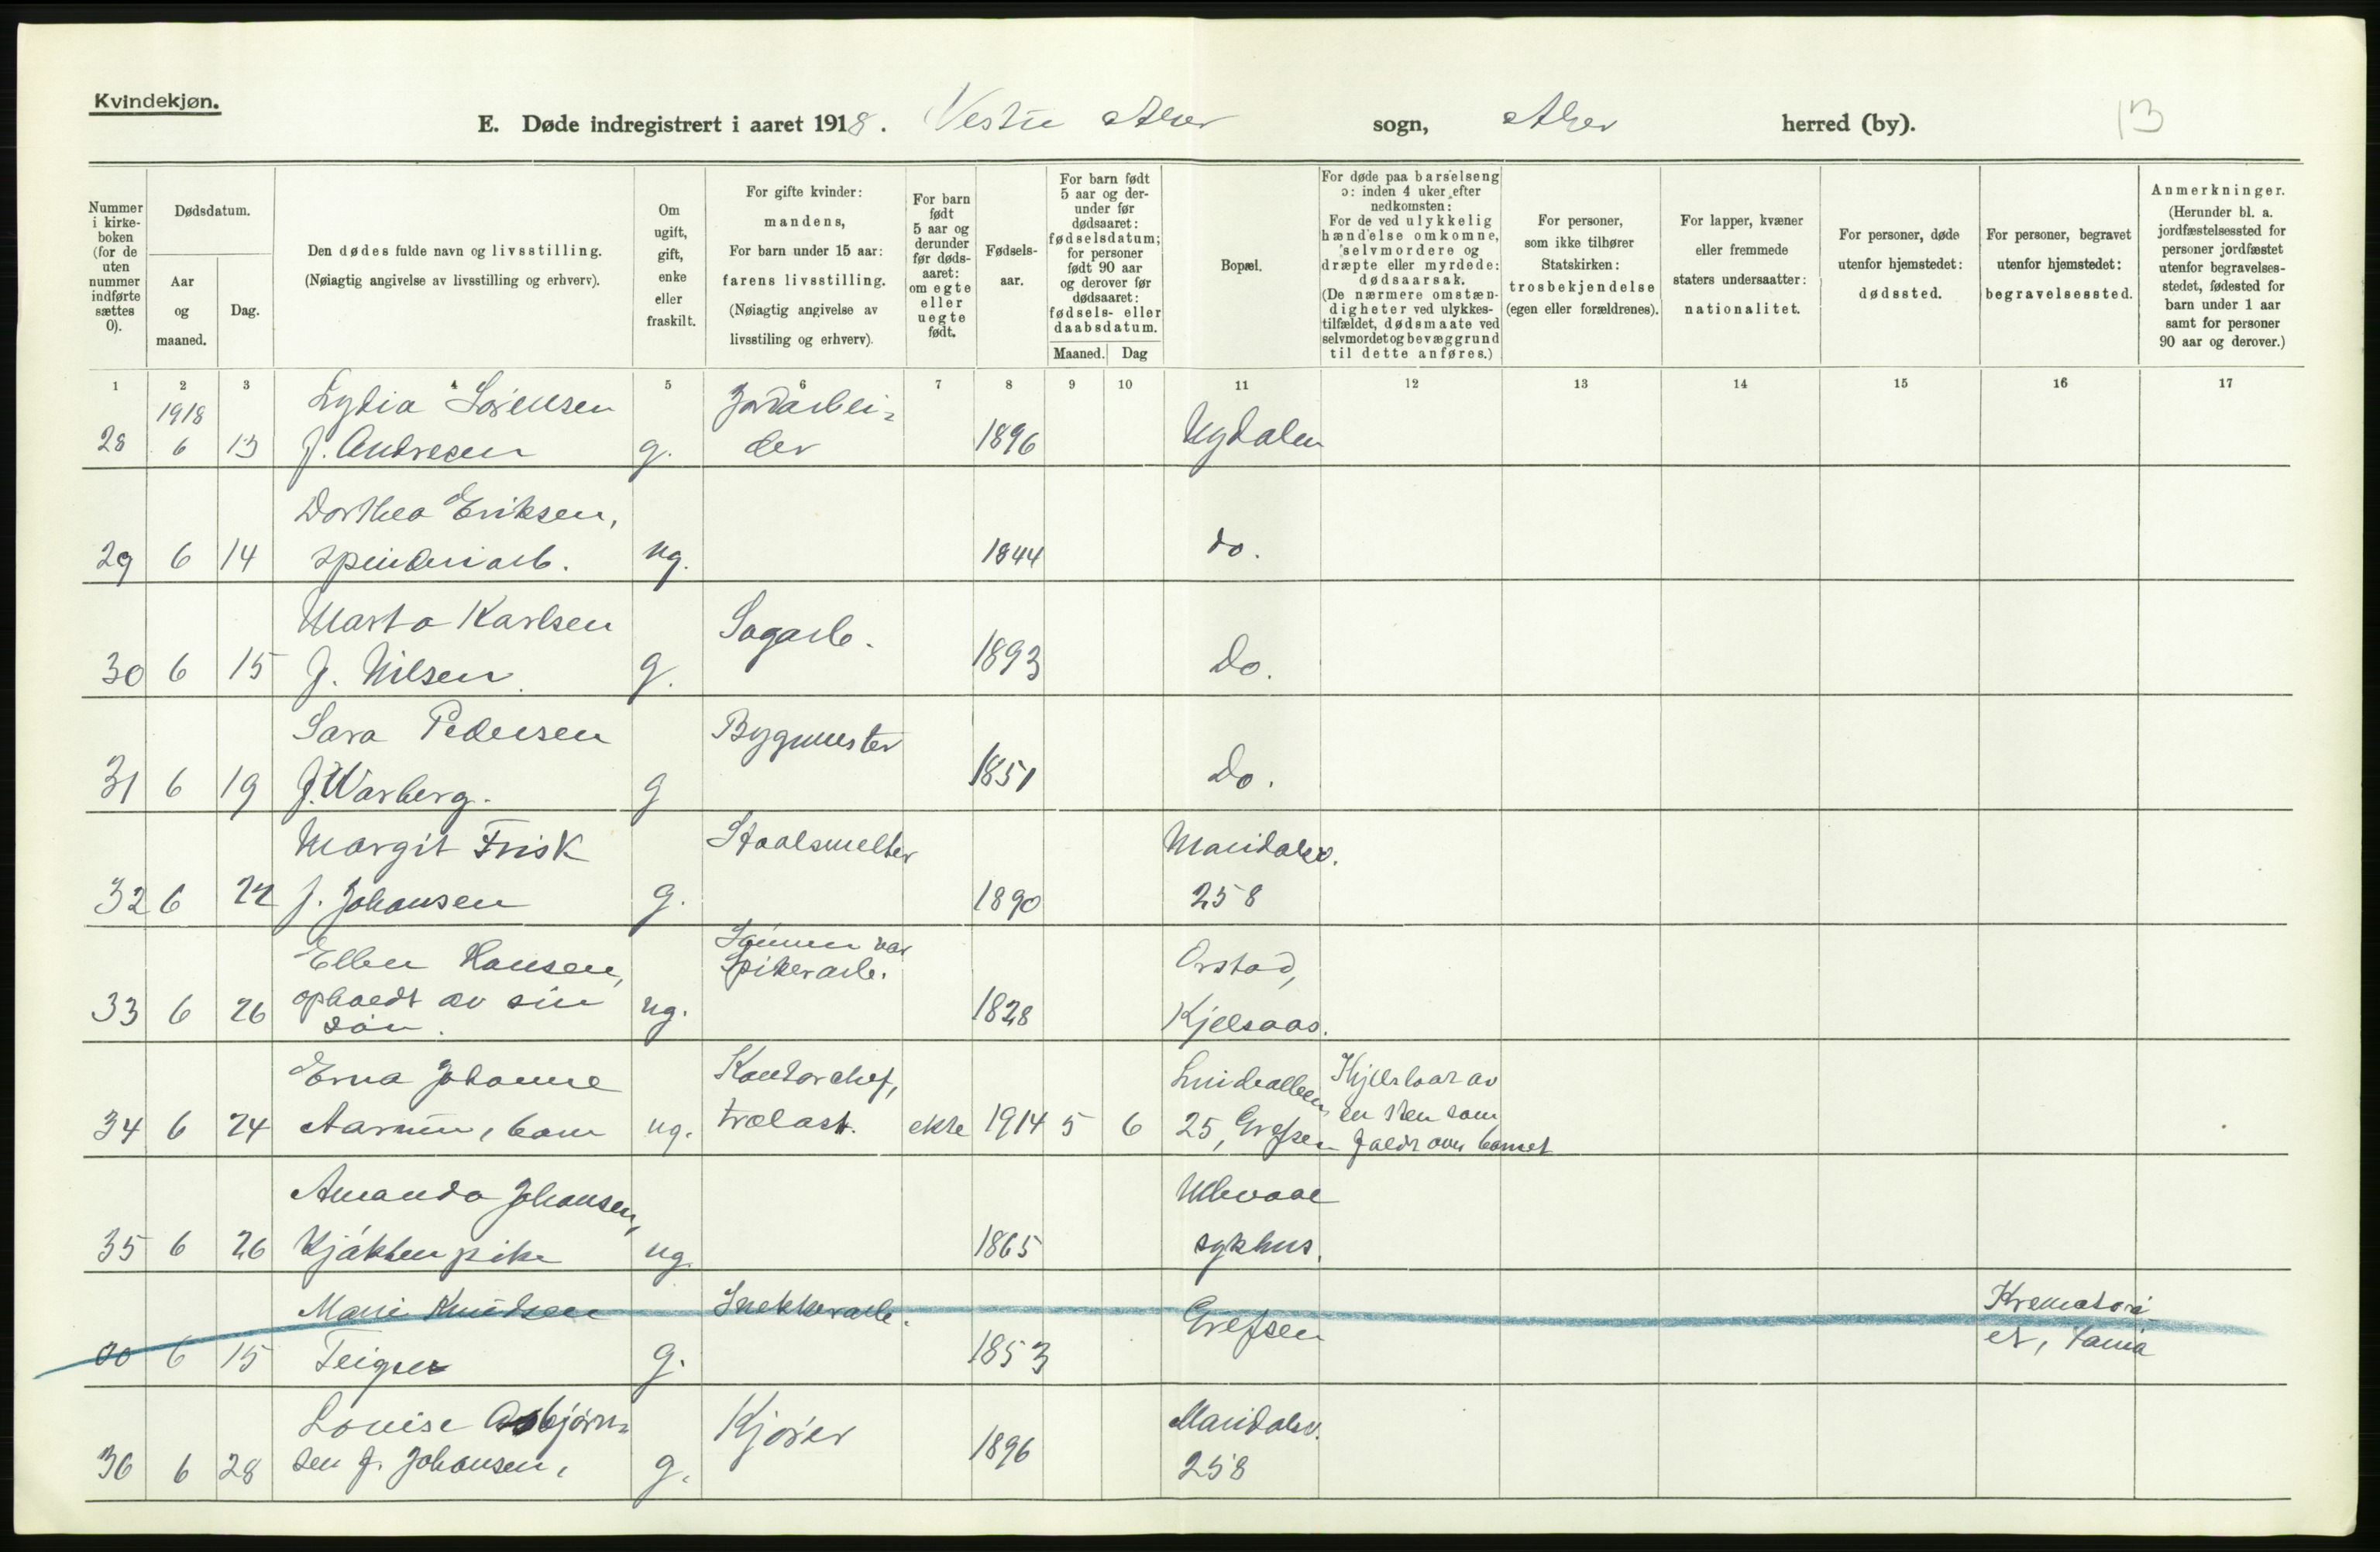 Kvindekjøn.
E. Døde indregistrert i aaret 1918. Vestre Aker sogn, Aker herred (by). 13
Nummer i kirke-boken (for de uten nummer indførte sættes 0).
Dødsdatum.
Aar og maaned.
Dag.
Den dødes fulde navn og livsstilling.
(Nøiagtig angivelse av livsstilling og erhverv).
Om ugift, gift, enke eller fraskilt.
For gifte kvinder: mandens,
For barn under 15 aar: farens livsstilling.
(Nøiagtig angivelse av livsstiling og erhverv).
For barn født 5 aar og derunder før døds-aaret: om egte eller uegte født.
Fødsels-aar.
For barn født 5 aar og der-under før dødsaaret: fødselsdatum; for personer født 90 aar og derover før dødsaaret: fødsels- eller daabsdatum.
Maaned. Dag
Bopæl.
For døde paa barselseng ɔ: inden 4 uker efter nedkomsten:
For de ved ulykkelig hændelse omkomne, selvmordere og dræpte eller myrdede: dødsaarsak.
(De nærmere omstæn-digheter ved ulykkes-tilfældet, dødsmaate ved selvmordet og bevæggrund til dette anføres.)
For personer, som ikke tilhører Statskirken: trosbekjendelse (egen eller forældrenes).
For lapper, kvæner eller fremmede staters undersaatter: nationalitet.
For personer, døde utenfor hjemstedet: dødssted.
For personer, begravet utenfor hjemstedet: begravelsessted.
Anmerkninger.
(Herunder bl. a. jordfæstelsessted for personer jordfæstet utenfor begravelses-stedet, fødested for barn under 1 aar samt for personer 90 aar og derover.)
1 2 3 4 5 6 7 8 9 10 11 12 13 14 15 16 17
1918 Lydia Sørensen Jordarbei-
28 6 13 f. Andresen g. der 1896 Nydalen
Dorthea Eriksen,
29 6 14 spinderiarb. ug. 1844 do.
Marta Karlsen Sagarb.
30 6 15 f. Nilsen g. 1893 Do.
Sara Pedersen Bygmester
31 6 19 f. Warberg. g 1851 Do.
Margit Frisk Staalsmelter Maridalsv.
32 6 22 f. Johansen g. 1890 258
Ellen Hansen, Sønnen var Spikerarb. Orstad,
33 6 26 opholdt av sin søn. ug. 1828 Kjelsaas.
Erna Johanne Kontorchef, Lindealleen Kjelslaat av
34 6 24 Aarnün, barn ug. trælast. ekte 1914 5 6 25, Grefsen en sten som
faldt over barnet
Amanda Johansen, Ullevaal
35 6 26 Kjøkkenpike ug. 1865 sykhus.
Marie Knudsen Snekkerarb. Grefsen Krematori
00 6 15 Teigner g. 1853 et,
Louise Asbjørn- Kjører Maridalsv.
36 6 28 sen f. Johansen, g. 1896 258